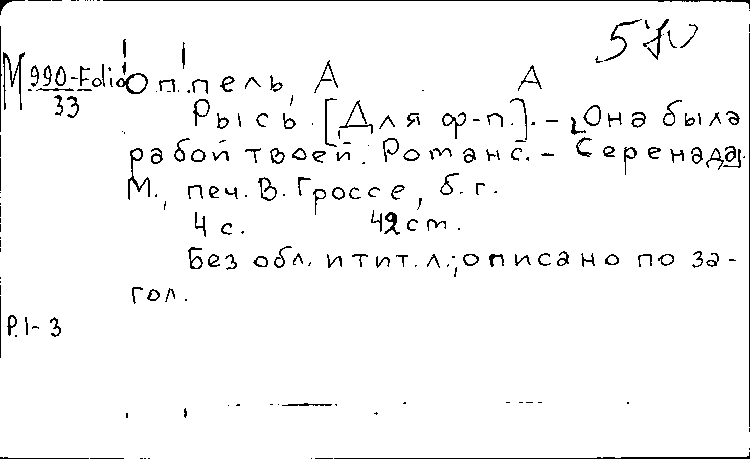 570
М 990-Folio Оппель, А А
33
Рысь. [Для ф-п.]. – Она была
рабой твоей. Романс. – Серенада.
М., печ. В. Гроссе, б. г.
4 с. 42 cm.
Без обл. и тит. л.; описано по за-
гол.
Р. 1-3